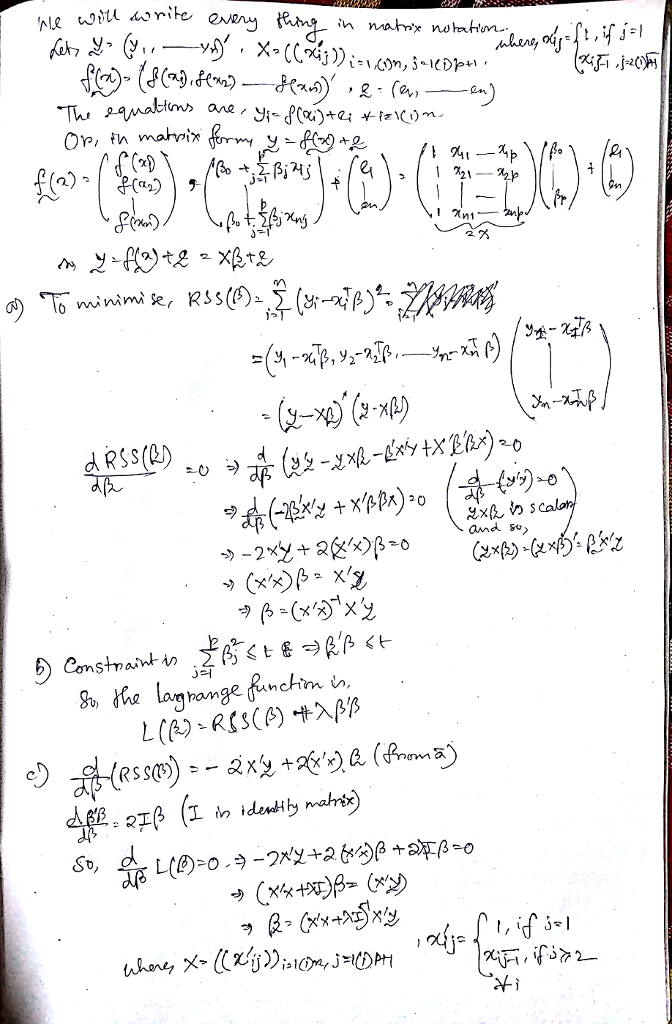 We will write every thing in matrix notation.
Let, y = (y₁, —— yₙ)', X = ((x'ᵢⱼ)) i=1(1)n, j=1(1)p+1, where, x'ᵢⱼ = {1, if j=1
xᵢⱼ₋₁, j=2(1)p+1
f(x) = (f(x₁), f(x₂) —— f(xₙ))', e = (e₁, —— eₙ)
The equations are, yᵢ = f(xᵢ) + eᵢ ∀ i=1(1)n
Or, in matrix form, y = f(x) + e
f(x) = (f(x₁) f(x₂) | f(xₙ)) = (β₀ + Σⱼ₌₁ᵖ βⱼ x₁ⱼ | β₀ + Σⱼ₌₁ᵖ βⱼ xₙⱼ) + (e₁ | eₙ) = (1 x₁₁ — x₁p 1 x₂₁ — x₂p | 1 xₙ₁ — xₙp) (β₀ | βp) + (e₁ | eₙ)
= X
⇒ y = f(x) + e = Xβ + e
a) To minimise, RSS(β) = Σᵢ₌₁ⁿ (yᵢ - xᵢᵀβ)²
= (y₁ - x₁ᵀβ, y₂ - x₂ᵀβ, —— yₙ - xₙᵀβ) (y₁ - x₁ᵀβ | yₙ - xₙᵀβ)
= (y - Xβ)' (y - Xβ)
dRSS(β)/dβ = 0 ⇒ d/dβ (y'y - yXβ - β'X'y + X'β'βX) = 0
⇒ d/dβ (-2β'X'y + X'β'βX) = 0 (d/dβ (y'y) = 0
yXβ is scalar
and so,
(yXβ) = (yXβ)' = β'X'y
⇒ -2X'y + 2(X'X)β = 0
⇒ (X'X)β = X'y
⇒ β = (X'X)⁻¹X'y
b) Constraint is Σⱼ₌₁ᵖ βⱼ² ≤ t ⇒ β'β ≤ t
So, the Lagrange function is,
L(β) = RSS(β) + λβ'β
c) d/dβ (RSS(β)) = -2X'y + 2(X'X)β (from a)
dβ'β/dβ = 2Iβ (I is identity matrix)
So, d/dβ L(β) = 0 ⇒ -2X'y + 2(X'X)β + 2λIβ = 0
⇒ (X'X + λI)β = (X'y)
⇒ β = (X'X + λI)⁻¹X'y
where, X = ((x'ᵢⱼ)) i=1(1)n, j=1(1)p+1, x'ᵢⱼ = {1, if j=1
xᵢⱼ₋₁, if j≥2
∀ i